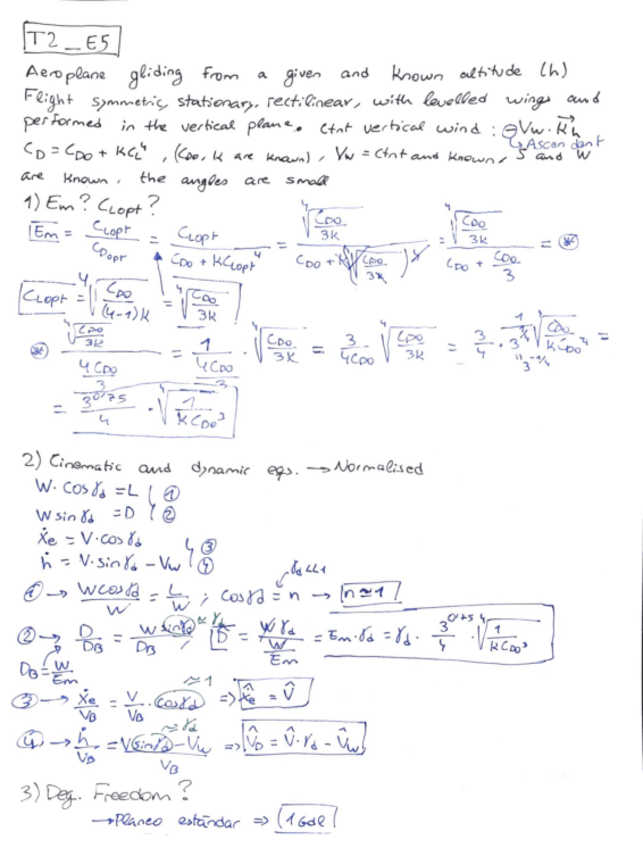 T2_E5
Aeroplane gliding from a given and known altitude (h)
Flight symmetric, stationary, rectilinear, with levelled wings and
performed in the vertical plane. Ctnt vertical wind: ⊖Vw·k⃗h
↳Ascendent
CD = CD0 + KCL⁴, (CD0, K are known), Vw = ctnt and known, S and W
are known, the angles are small
1) Em? CLopt?
Em = CLopt / CDopt = CLopt / (CD0 + KCLopt⁴) = ⁴√(CD0/3K) / (CD0 + K(⁴√(CD0/3K))⁴) = ⁴√(CD0/3K) / (CD0 + CD0/3) = ⊛
CLopt = ⁴√(CD0/((4-1)K)) = ⁴√(CD0/3K)
⊛ ⁴√(CD0/3K) / (4CD0/3) = 1/(4CD0/3) · ⁴√(CD0/3K) = 3/(4CD0) ⁴√(CD0/3K) = 3/4 · 1/3^(1/4) ⁴√(CD0/(KCD0⁴)) =
" 3^(-1/4)
= 3^0'75/4 · ⁴√(1/(KCD0³))
2) Cinematic and dynamic eqs. → Normalised
W·cosγd = L ①
W sinγd = D ②
ẋe = V·cosγd ③
ḣ = V·sinγd − Vw ④
γd<<1
① → Wcosγd/W = L/W ; cosγd = n → n≃1
② → D/DB = W sinγd/DB ≃γd D̂ = Wγd/(W/Em) = Em·γd = γd · 3^0'75/4 · ⁴√(1/(KCD0³))
DB = W/Em
③ → ẋe/VB = V/VB · cosγd ≃1 => x̂̇e = V̂
④ → ḣ/VB = (V sinγd − Vw)/VB ≃γd => V̂D = V̂·γd − V̂w
3) Deg. Freedom?
→ Planeo estándar => 1 Gdl